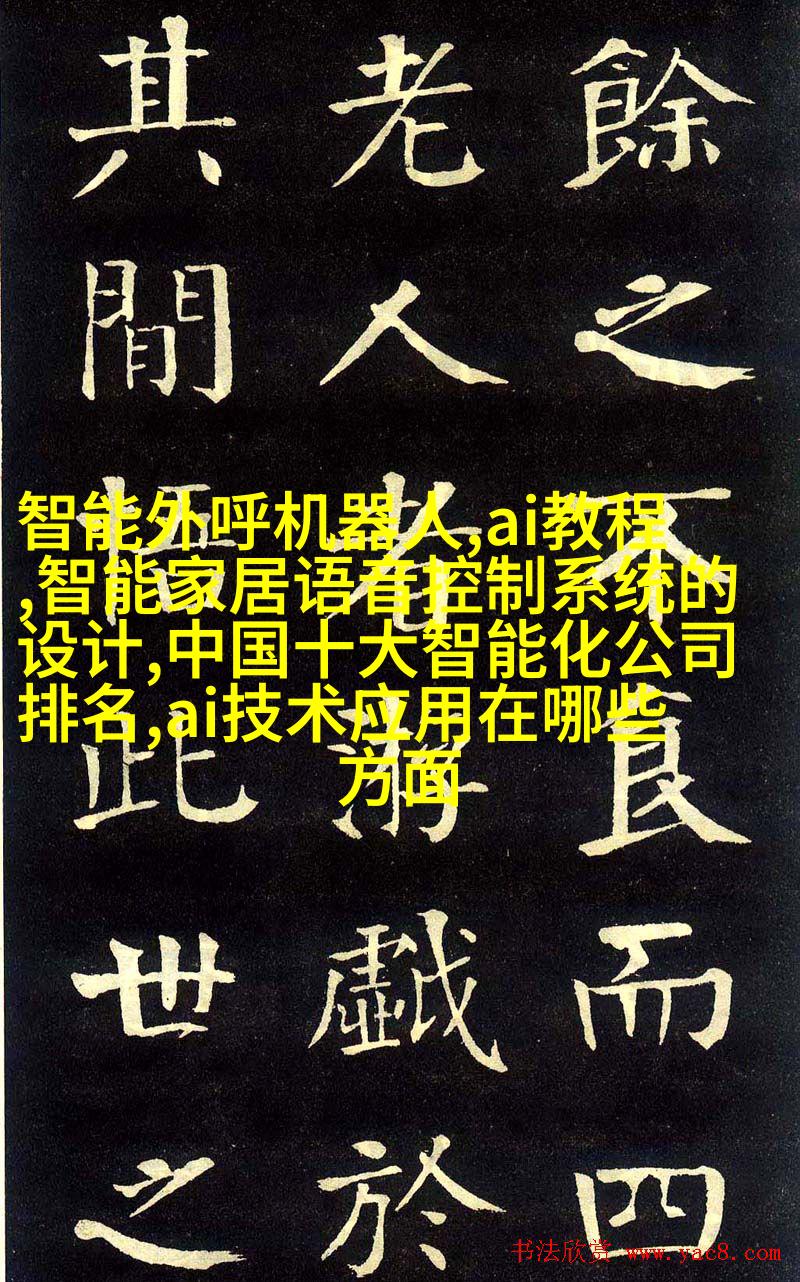 餘之不而四
老人者游戲於
其間悟此世之
智能外呼机器人,ai教程
,智能家居语音控制系统的
设计,中国十大智能化公司
排名,ai技术应用在哪些
方面
书法欣赏 www.yac8.com